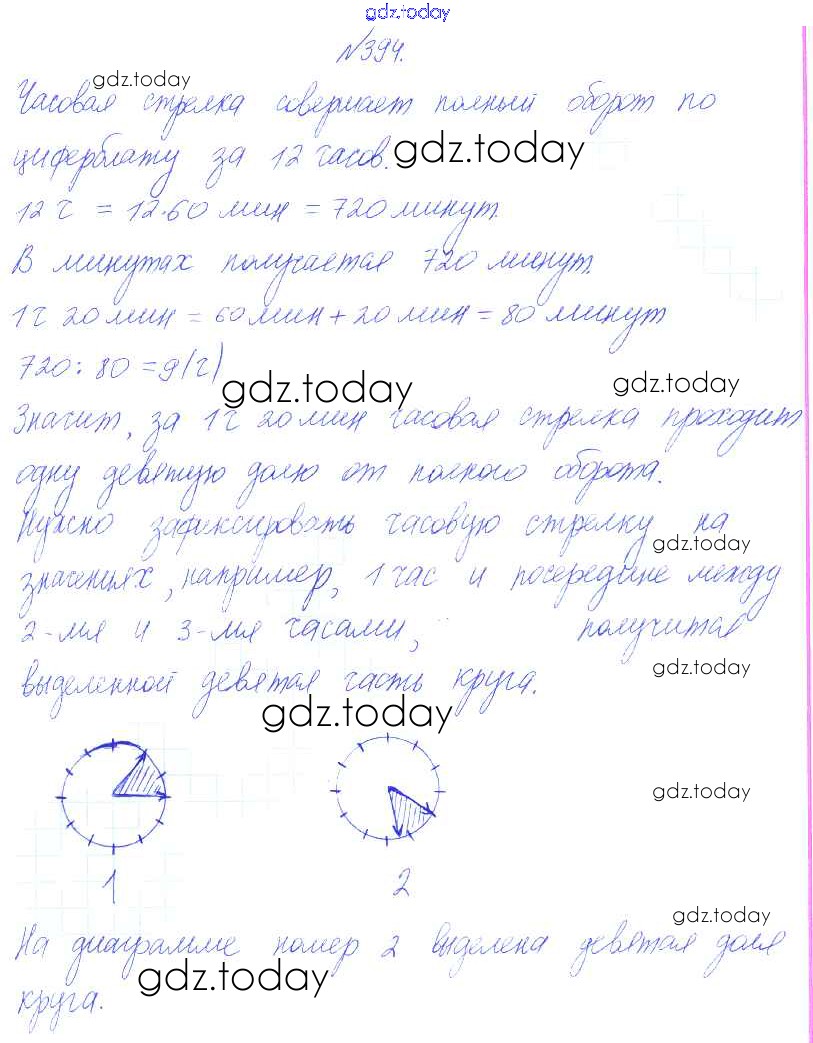 gdz.today
№394.
gdz.today
Часовая стрелка совершает полный оборот по
циферблату за 12 часов. gdz.today
12 ч = 12·60 мин = 720 минут.
В минутах получается 720 минут.
1ч 20 мин = 60 мин + 20 мин = 80 минут
720 : 80 = 9(ч)
gdz.today gdz.today
Значит, за 1 ч 20 мин часовая стрелка проходит
одну девятую долю от полного оборота.
Нужно зафиксировать часовую стрелку на
gdz.today
значениях, например, 1 час и посередине между
2-мя и 3-мя часами, получится
gdz.today
выделенной девятая часть круга.
gdz.today
gdz.today
1 2
gdz.today
На диаграмме номер 2 выделена девятая доля
gdz.today
круга.